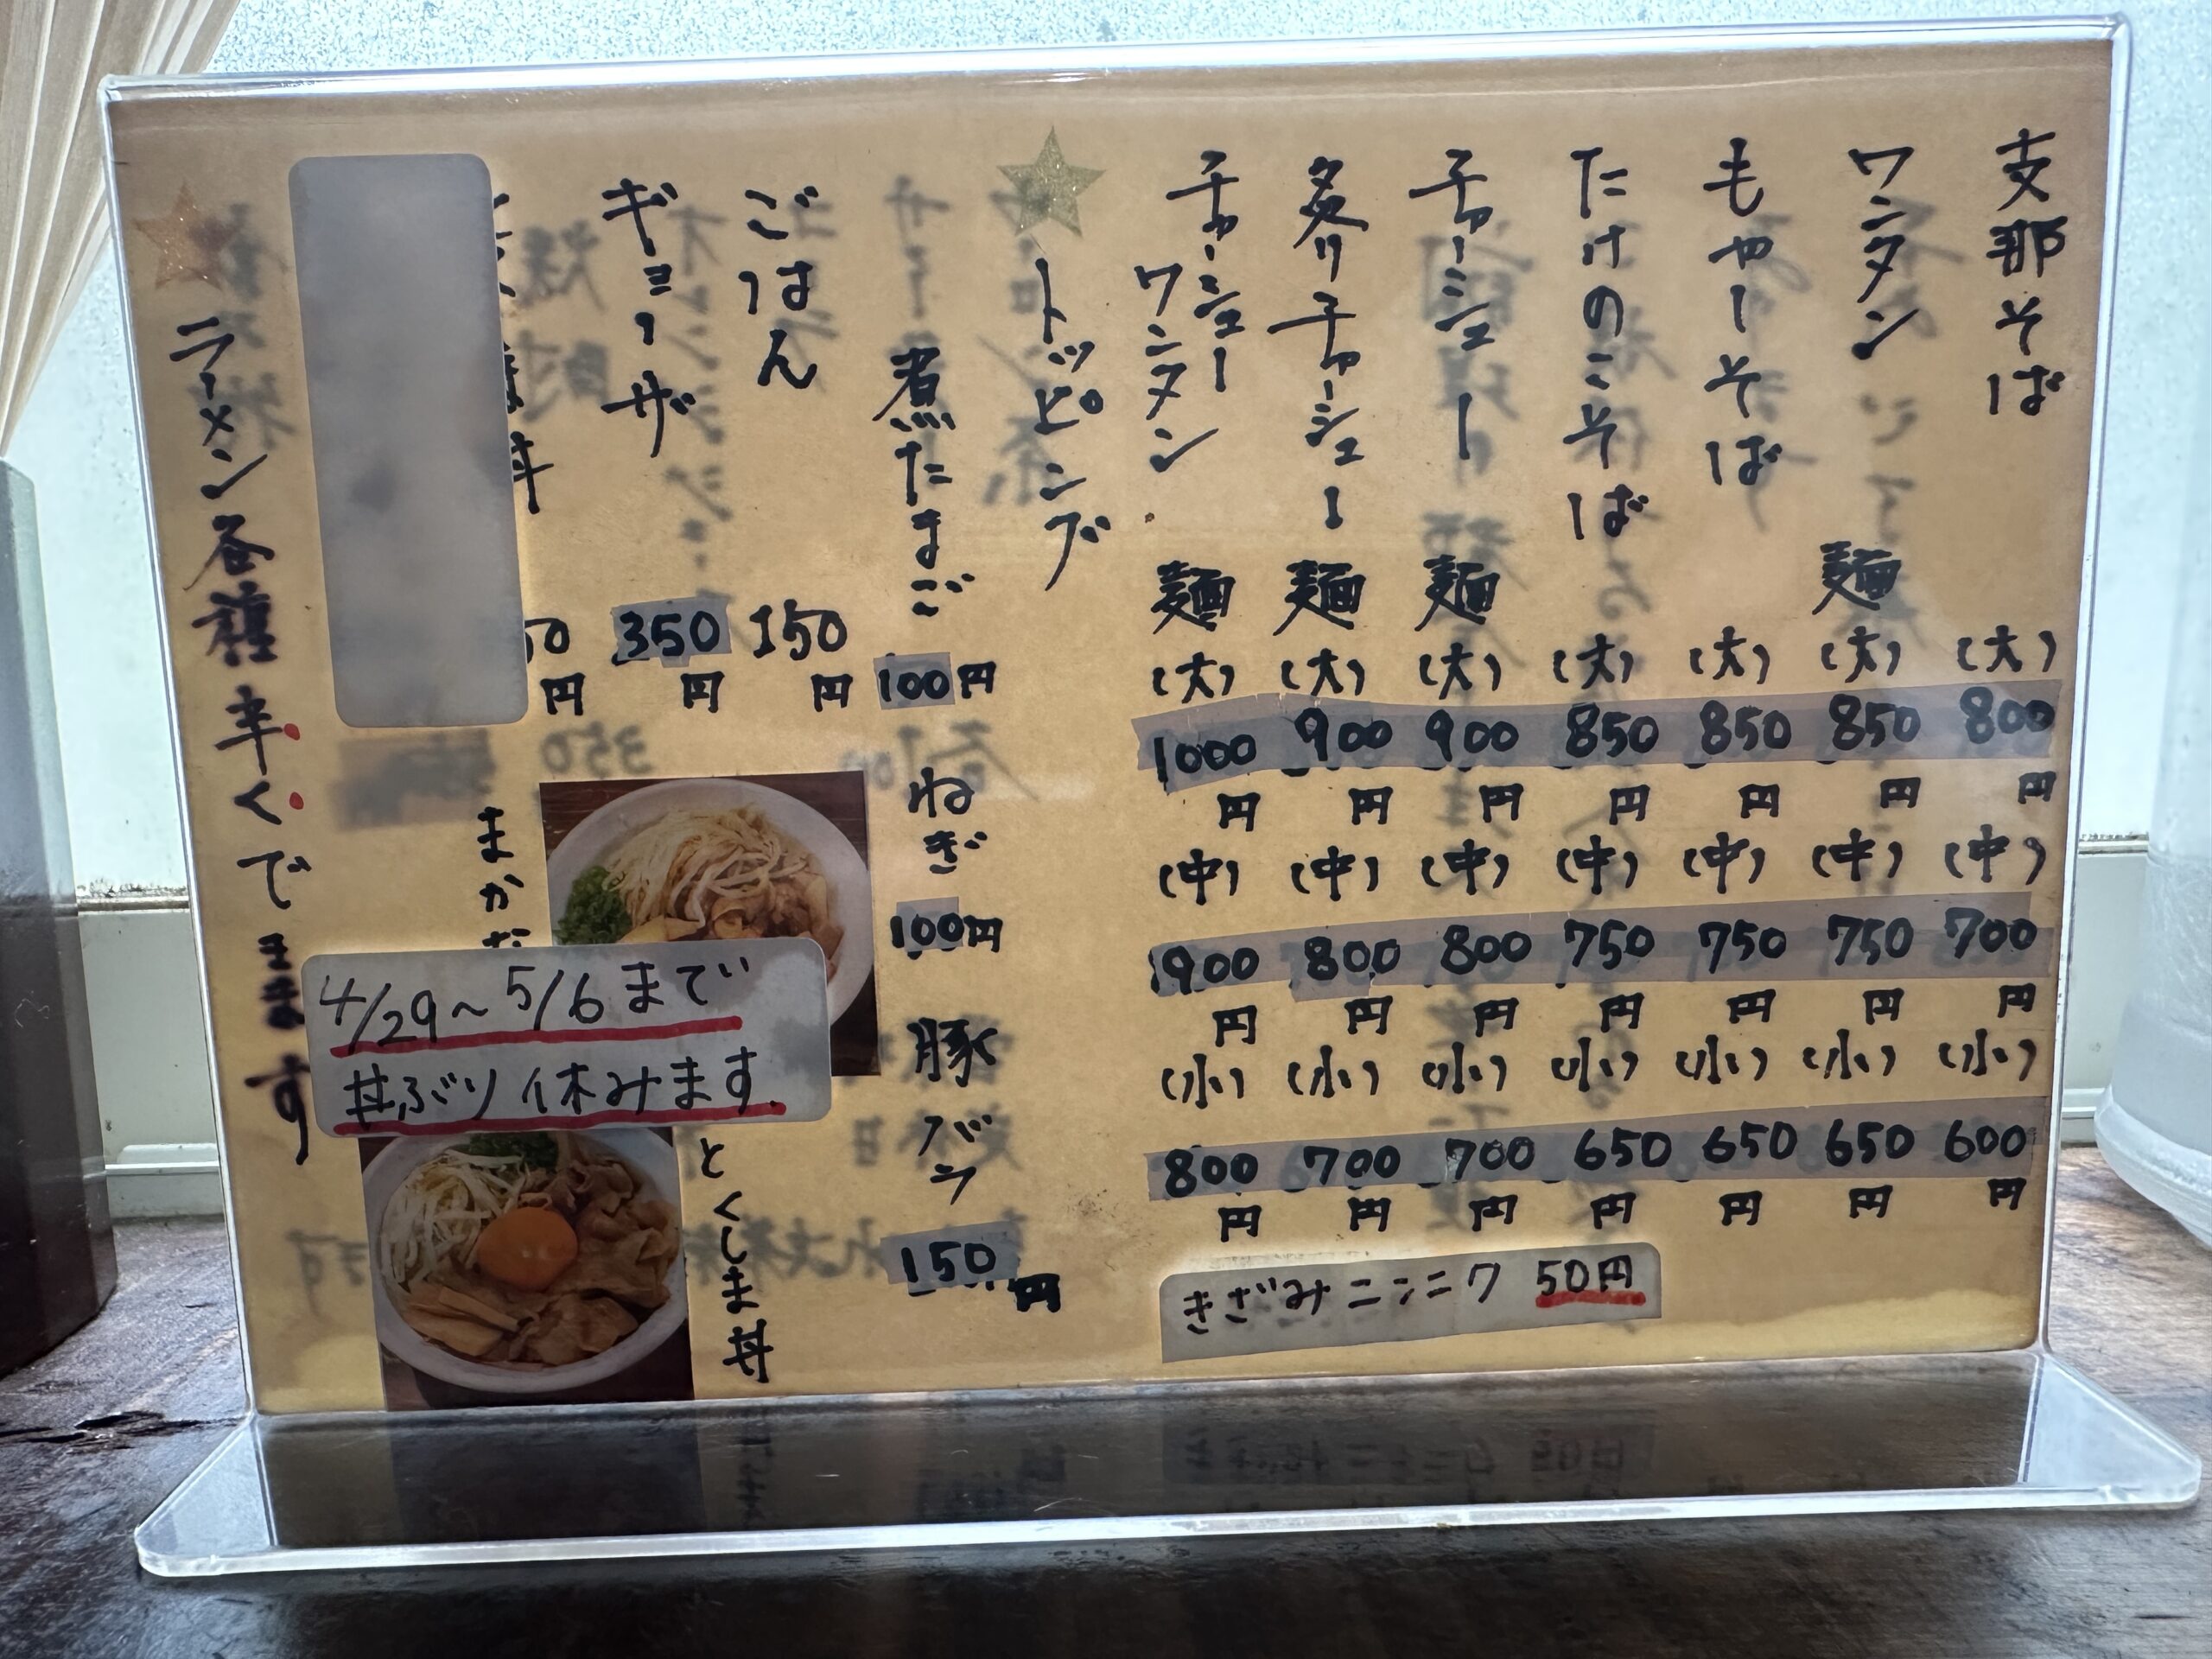 支那そば (大) 800円 (中) 700円 (小) 600円
ワンタン麺 (大) 850円 (中) 750円 (小) 650円
もやーそば (大) 850円 (中) 750円 (小) 650円
たけのこそば (大) 850円 (中) 750円 (小) 650円
チャーシュー麺 (大) 900円 (中) 800円 (小) 700円
炙りチャーシュー麺 (大) 900円 (中) 800円 (小) 700円
チャーシューワンタン麺 (大) 1000円 (中) 900円 (小) 800円
きざみニンニク 50円
トッピング
煮たまご 100円 ねぎ 100円 豚バラ 150円
ごはん 150円
ギョーザ 350円
丼 0円
まかな
とくしま丼
4/29~5/6まで
丼ぶり休みます.
ラーメン各種辛くできます